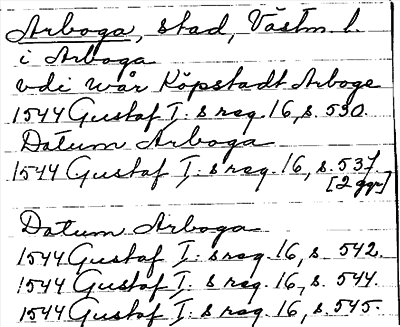 Arboga, stad, Västm. l.
i Arboga
vdi wår Köpstadt Arboge
1544 Gustaf I:s reg. 16, s. 530.
Datum Arboga
1544 Gustaf I:s reg. 16, s. 537
[2 ggr]
Datum Arboga
1544 Gustaf I:s reg. 16, s. 542.
1544 Gustaf I:s reg. 16, s. 544.
1544 Gustaf I:s reg. 16, s. 545.